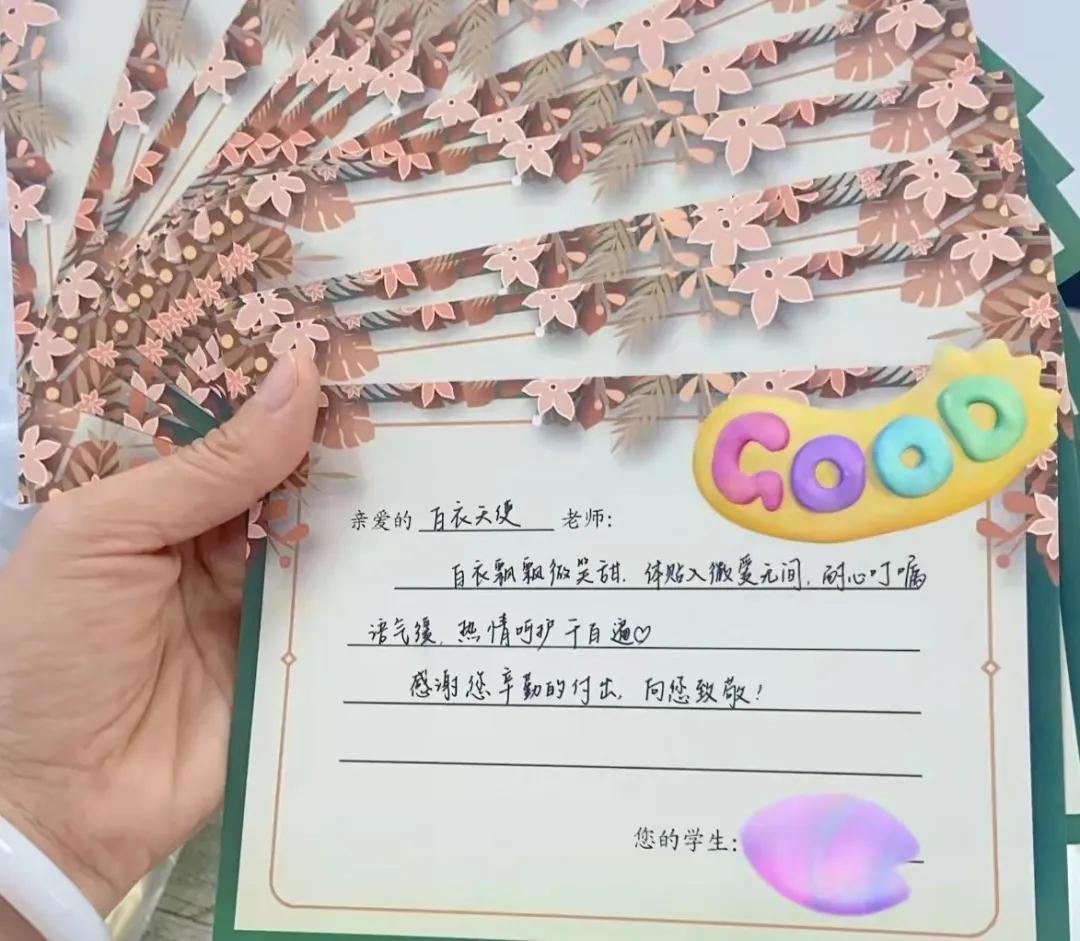 GOOD
亲爱的 白衣天使 老师:
白衣飘飘微笑甜. 体贴入微爱无间, 耐心叮嘱
语气缓, 热情呵护千百遍♡
感谢您辛勤的付出, 向您致敬!
您的学生: